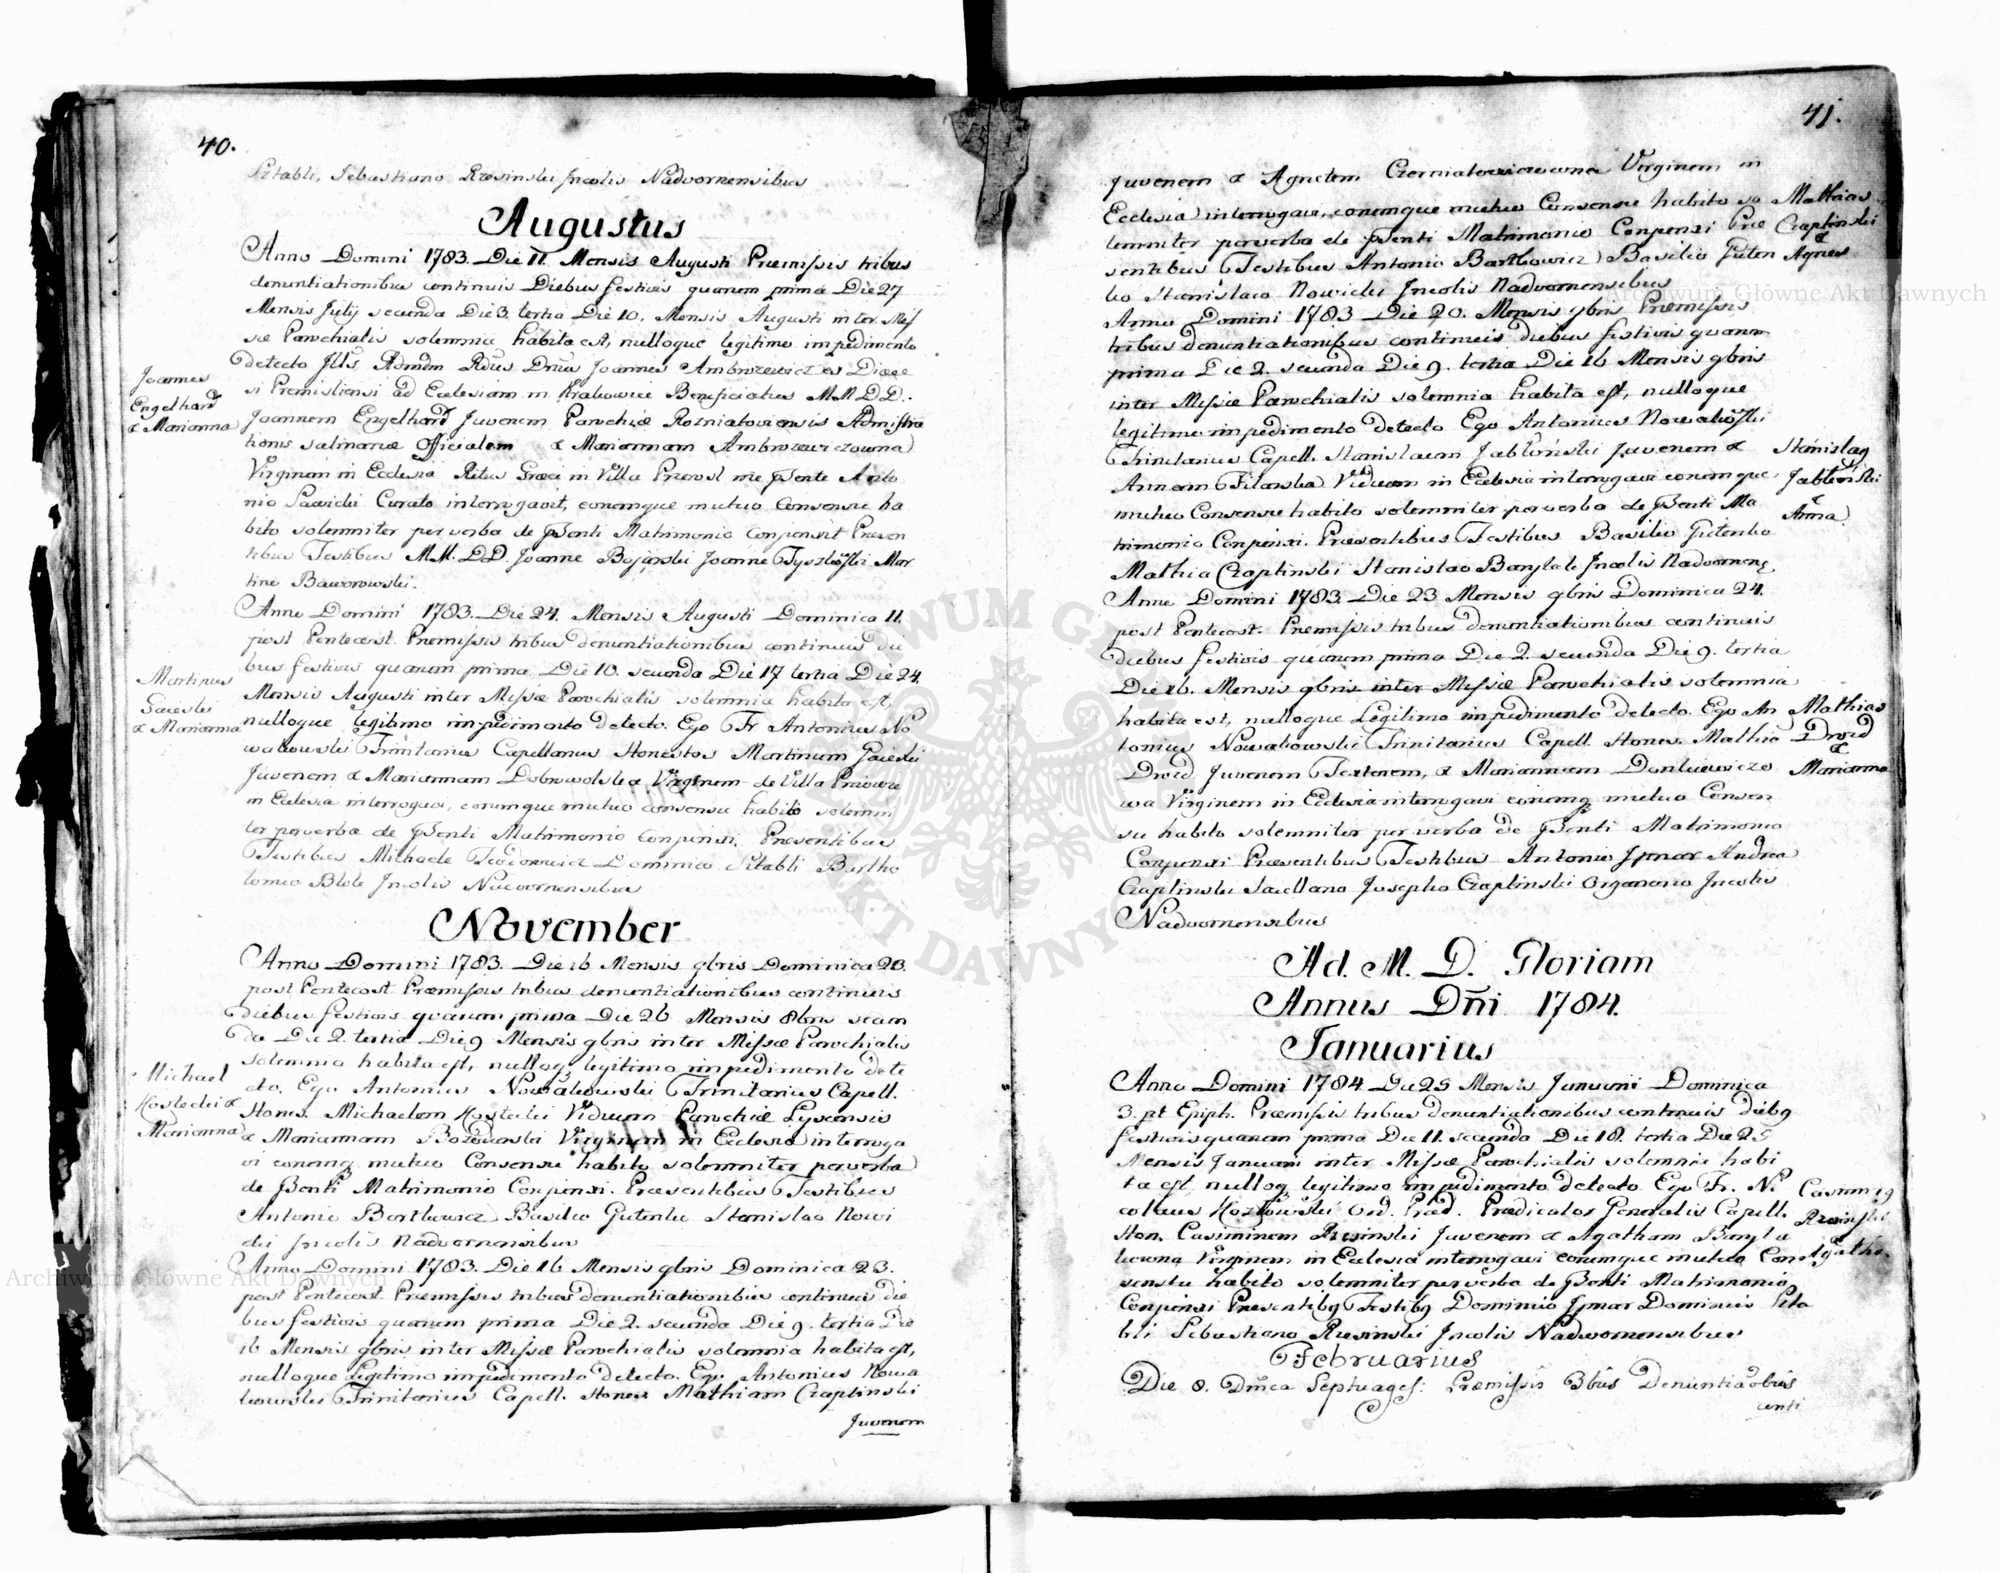 40.
Pitabli, Sebastiano Rosinski Incolis Nadvornensibus
Augustus
Anno Domini 1783. Die 11 Mensis Augusti Præmissis tribus
denuntiationibus continuis Diebus festivis quarum prima Die 27
Mensis Julij secunda Die 3. tertia Die 10. Mensis Augusti inter Mis
sæ Parochialis solemnia habita est, nulloque legitimo impedimento
detecto Jlls Admdm Rdus Dnus Joannes Ambrozewicz ex Dioece
si Premisliensi ad Ecclesiam in Krakowiec Beneficiatus M M D D.
Joannes
Engelhard
& Marianna
Joannem Engelhard Juvenem Parochiæ Rozniatoviensis Administra
tionis salinariæ Officialem & Mariannam Ambrozewiczowna
Virginem in Ecclesia Ritus Græci in Villa Prerosl me pnte Anto
nio Sawicki Curato interrogavit, eorumque mutuo Consensu ha
bito solemniter per verba de pnti Matrimonio Conjunxit Præsen
tibus Testibus M.M. D.D. Joanne Bojarski Joanne Tyszkoski Mar
tino Baworowski.
Anno Domini 1783. Die 24. Mensis Augusti Dominica 11.
post Pentecost. Premissis tribus denuntiationibus continuis die
bus festivis quarum prima Die 10. secunda Die 17 tertia Die 24.
Martinus
Gaieski
& Marianna
Mensis Augusti inter Missæ Parochialis solemnia habita est,
nulloque legitimo impedimento detecto. Ego Fr Antonius No
wakowski Trinitarius Capellanus Honestos Martinum Gaieski
Juvenem & Mariannam Dobrowolska Virginem de Villa
in Ecclesia interrogavi, eorumque mutuo consensu habito solemni
ter per verba de pnti Matrimonio Conjunxi. Præsentibus
Testibus Michaele Teodorowicz Dominico Pitabli Bartho
lomeo Incolis Nadvornensibus
November
Anno Domini 1783. Die 16 Mensis 9bris Dominica 23.
post Pentecost Præmissis tribus denuntiationibus continuis
diebus festivis quarum prima Die 26 Mensis 8bris secun
da Die 2. tertia Die 9 Mensis 9bris inter Missæ Parochialis
solemnia habita est, nulloq legitimo impedimento dete
Michael
Kostecki &
Marianna
cto. Ego Antonius Nowakowski Trinitarius Capell.
Hones. Michaelem Kostecki Viduum Parochiæ Lysecensis
& Mariannam Virginem in Ecclesia interroga
vi eorumq mutuo Consensu habito solemniter per verba
de pnti Matrimonio Conjunxi. Præsentibus Testibus
Antonio Bartkowicz Basilio Gutenko Stanislao Nowi
cki Incolis Nadvornensibus
Anno Domini 1783. Die 16 Mensis 9bris Dominica 23.
post Pentecost. Præmissis tribus denuntiationibus continuis die
bus festivis quarum prima Die 2. secunda Die 9. tertia Die
16 Mensis 9bris inter Missæ Parochialis solemnia habita est,
nulloque legitimo impedimento detecto. Ego Antonius Nowa
kowski Trinitarius Capell. Hones Mathiam Czaplinski
Juvenem
41.
Juvenem & Agnetem Czerniatowiczowna Virginem in
Ecclesia interrogavi, eorumque mutuo Consensu habito so
lemniter per verba de pnti Matrimonio Conjunxi Præ
sentibus Testibus Antonio Bartkowicz Basilio Guten
ko Stanislao Nowicki Incolis Nadvornensibus
Mathias
Czaplinski
&
Agnes
Anno Domini 1783 Die 20. Mensis 9bris Præmissis
tribus denuntiationibus continuis diebus festivis quarum
prima Die 2. secunda Die 9. tertia Die 16 Mensis 9bris
inter Missæ Parochialis solemnia habita est, nulloque
legitimo impedimento detecto Ego Antonius Nowakoski
Trinitarius Capell. Stanislaum Jabłoński Juvenem &
Annam Filanska Viduam in Ecclesia interrogavi eorumque
mutuo Consensu habito solemniter per verba de pnti Ma
trimonio Conjunxi. Præsentibus Testibus Basilio Gutenko
Mathia Czaplinski Stanislao Incolis Nadvornens
Stanislag
Jabłoński
&
Anna
Anno Domini 1783. Die 23 Mensis 9bris Dominica 24.
post Pentecost. Præmissis tribus denuntiationibus continuis
diebus festivis quarum prima Die 2. secunda Die 9. tertia
Die 16. Mensis 9bris inter Missæ Parochialis solemnia
habita est, nulloque Legitimo impedimento detecto. Ego An
tonius Nowakowski Trinitarius Capell. Hones. Mathia
Drozd Juvenem Textorem, & Mariannam Dankiewiczo
wa Virginem in Ecclesia interrogavi eorumq mutuo Consen
su habito solemniter per verba de pnti Matrimonio
Conjunxi Præsentibus Testibus Antonio Ignar Andrea
Czaplinski Sacellano Josepho Czaplinski Organario Incolis
Nadvornensibus
Mathias
Drozd
&
Marianna
Ad. M. D. Gloriam
Annus Dñi 1784.
Januarius
Anno Domini 1784 Die 25 Mensis Januarii Dominica
3. pt Epiph. Præmissis tribus denuntiationibus continuis diebg
festivis quarum prima Die 11. secunda Die 18. tertia Die 25
Mensis Januarii inter Missæ Parochialis solemnia habi
ta est nulloq legitimo impedimento detecto Ego Fr. Ni
colaus Ord. Præd. Prædicator Generalis Capell.
Hon. Casimirum Rosinski Juvenem & Agatham
kowna Virginem in Ecclesia interrogavi eorumque mutuo Con
sensu habito solemniter per verba de pnti Matrimonio
Conjunxi Presentibg Testibg Dominico Ignar Dominico Pita
bli Sebastiano Rosinski Incolis Nadvornensibus
Casimirg
Rosinski
&
Agatha.
Februarius
Die 8. Dmca Septuages: Præmissis 3bus Denuntiaōbus
conti
Archiwum Główne Akt Dawnych
Archiwum Główne Akt Dawnych
ARCHIWUM GŁÓWNE AKT DAWNYCH